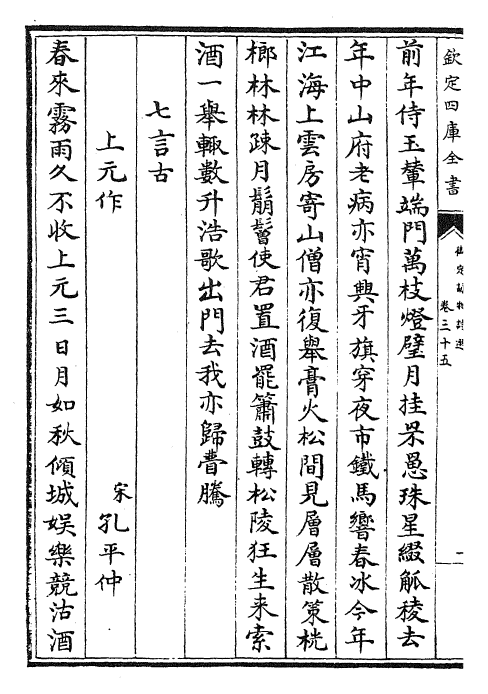 欽定四庫全書
卷三十五
前年侍玉輦端門萬枝燈璧月挂罘罳珠星綴觚稜去
年中山府老病亦宵興牙旗穿夜市鐵馬響春冰今年
江海上雲房寄山僧亦復舉膏火松間見層層散策桄
榔林林疎月鬅鬙使君置酒罷簫鼓轉松陵狂生来索
酒一舉輙數升浩歌出門去我亦歸瞢騰
七言古
上元作
宋孔平仲
春來霧雨久不收上元三日月如秋傾城娱樂競沽酒